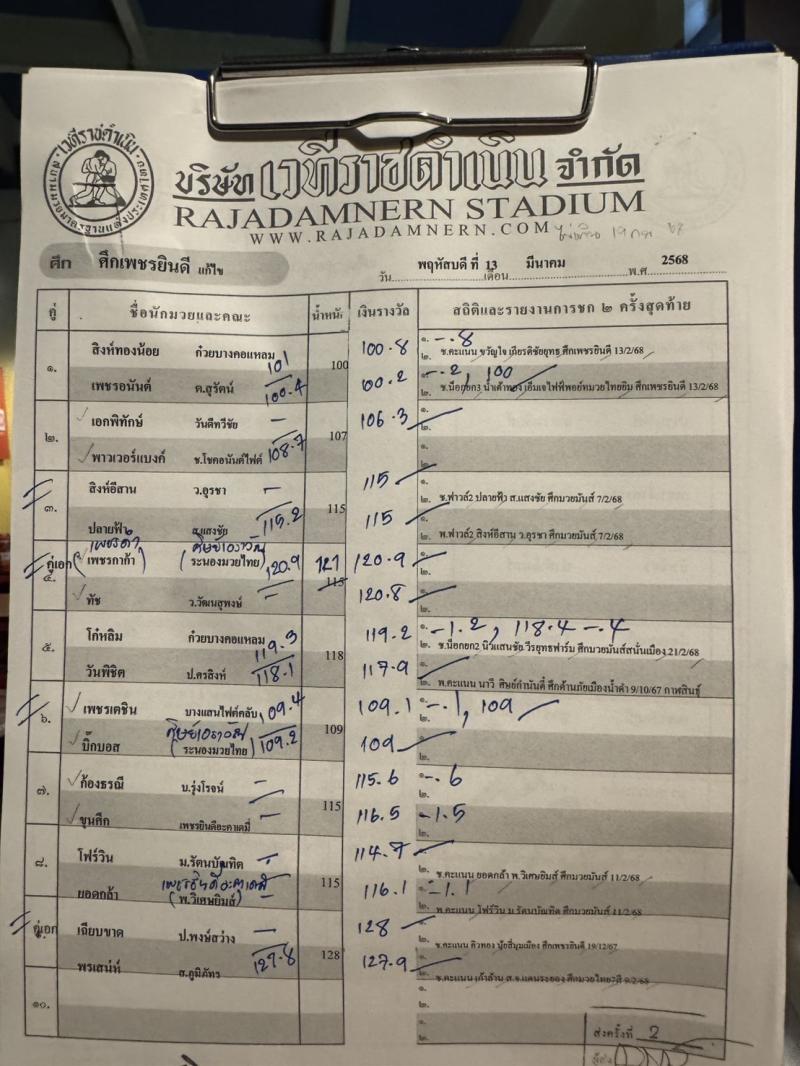 เวทีราชดำเนิน
บริษัท เวทีราชดำเนิน จำกัด
RAJADAMNERN STADIUM
WWW.RAJADAMNERN.COM
ศึก ศึกเพชรยินดี แก้ไข
วัน พฤหัสบดี ที่ 13 เดือน มีนาคม พ.ศ. 2568
คู่ ชื่อนักมวยและคณะ น้ำหนัก เงินรางวัล สถิติและรายงานการชก ๒ ครั้งสุดท้าย
๑. สิงห์ทองน้อย ก๋วยบางคอแหลม 101 100 100.8 ๑. -.8
๒. ช.คะแนน ขวัญใจ เกียรติชัยยุทธ ศึกเพชรยินดี 13/2/68
เพชรอนันต์ ต.สุรัตน์ 100.4 100.2 ๑. -.2, 100
๒. ช.น็อกยก3 น้ำเต้าทอง เอ็มเจไฟฟีพอยท์มวยไทยยิม ศึกเพชรยินดี 13/2/68
๒. เอกพิทักษ์ วันดีทวีชัย - 107 106.3 ๑.
๒.
พาวเวอร์แบงค์ ช.โชคอนันต์ไฟต์ 108.7 ๑.
๒.
๓. สิงห์อีสาน ว.อุรชา - 115 115 ๑.
๒. ช.ฟาวล์2 ปลายฟ้า ส.แสงชัย ศึกมวยมันส์ 7/2/68
ปลายฟ้า ส.แสงชัย 115.2 115 ๑.
๒. พ.ฟาวล์2 สิงห์อีสาน ว.อุรชา ศึกมวยมันส์ 7/2/68
เพชรดำ ศิษย์เอราวัณ
คู่เอก ๔. (เพชรกาก้า (ระนองมวยไทย) 120.9 121 115 120.9 ๑.
๒.
ทัช ว.วัฒนสุพงษ์ - 120.8 ๑.
๒.
๕. โก๋หลิม ก๋วยบางคอแหลม 119.3 118 119.2 ๑. -1.2, 118.4 -.4
๒. ช.น็อกยก2 นิวแสนชัย วีรยุทธฟาร์ม ศึกมวยมันส์สนั่นเมือง 21/2/68
วันพิชิต ป.ศรสิงห์ 118.1 117.9 ๑.
๒. พ.คะแนน นาวี ศิษย์กำนันดี่ ศึกต้านภัยเมืองน้ำดำ 9/10/67 กาฬสินธุ์
๖. เพชรเตชิน บางแสนไฟต์คลับ 109.4 109 109.1 ๑. -.1, 109
๒.
ศิษย์เอราวัณ
บิ๊กบอส (ระนองมวยไทย) 109.2 109 ๑.
๒.
๗. ก้องธรณี บ.รุ่งโรจน์ - 115 115.6 ๑. -.6
๒.
ขุนศึก เพชรยินดีอะคาเดมี่ - 116.5 -1.5
๒.
๘. โฟร์วิน ม.รัตนบัณฑิต - 115 114.7 ๑.
๒. ช.คะแนน ยอดกล้า พ.วิเศษยิมส์ ศึกมวยมันส์ 11/2/68
เพชรยินดีอะคาเดมี่
ยอดกล้า (พ.วิเศษยิมส์) 116.1 ๑. -1.1
๒. พ.คะแนน โฟร์วิน ม.รัตนบัณฑิต ศึกมวยมันส์ 11/2/68
คู่เอก เฉียบขาด ป.พงษ์สว่าง - 128 128 ๑.
๒. ช.คะแนน คิวทอง นุ้ยสี่มุมเมือง ศึกเพชรยินดี 19/12/67
พรเสน่ห์ ส.ภูมิภัทร 127.8 127.9 ๑.
๒. ช.คะแนน เก้าล้าน ส.จ.แดนระยอง ศึกมวยไทย7สี 9/2/68
๑๐. ๑.
๒.
๑.
๒.
ส่งครั้งที่ 2
ผู้ส่ง